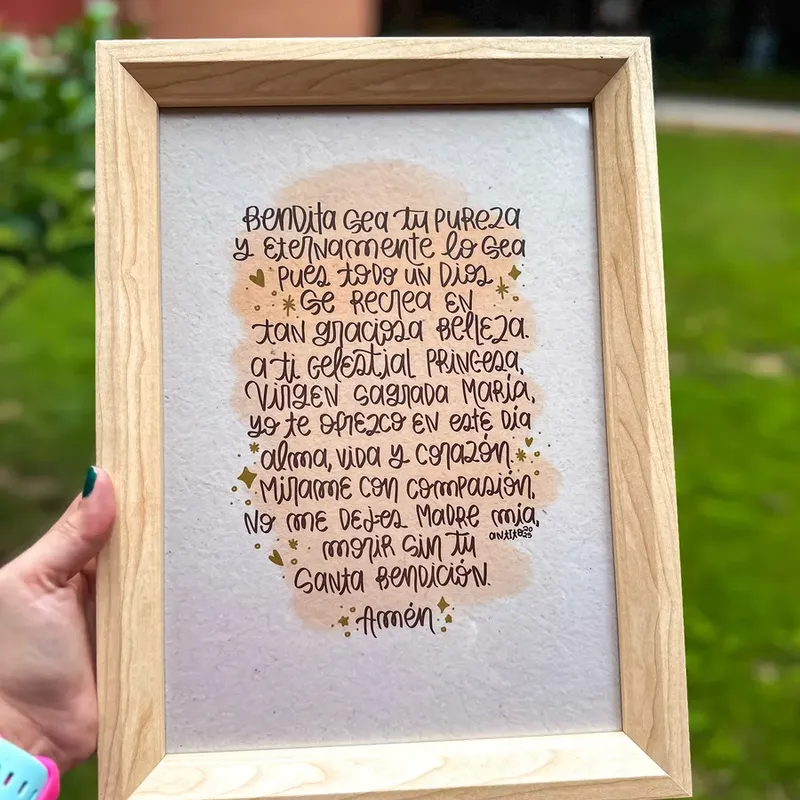 Bendita sea tu pureza
y eternamente lo sea
pues todo un Dios
se recrea en
tan graciosa belleza.
a ti celestial princesa,
Virgen sagrada María,
yo te ofrezco en este día
alma, vida y corazón.
Mírame con compasión,
No me dejes Madre mía,
antito 2025
morir sin tu
santa bendición.
Amén